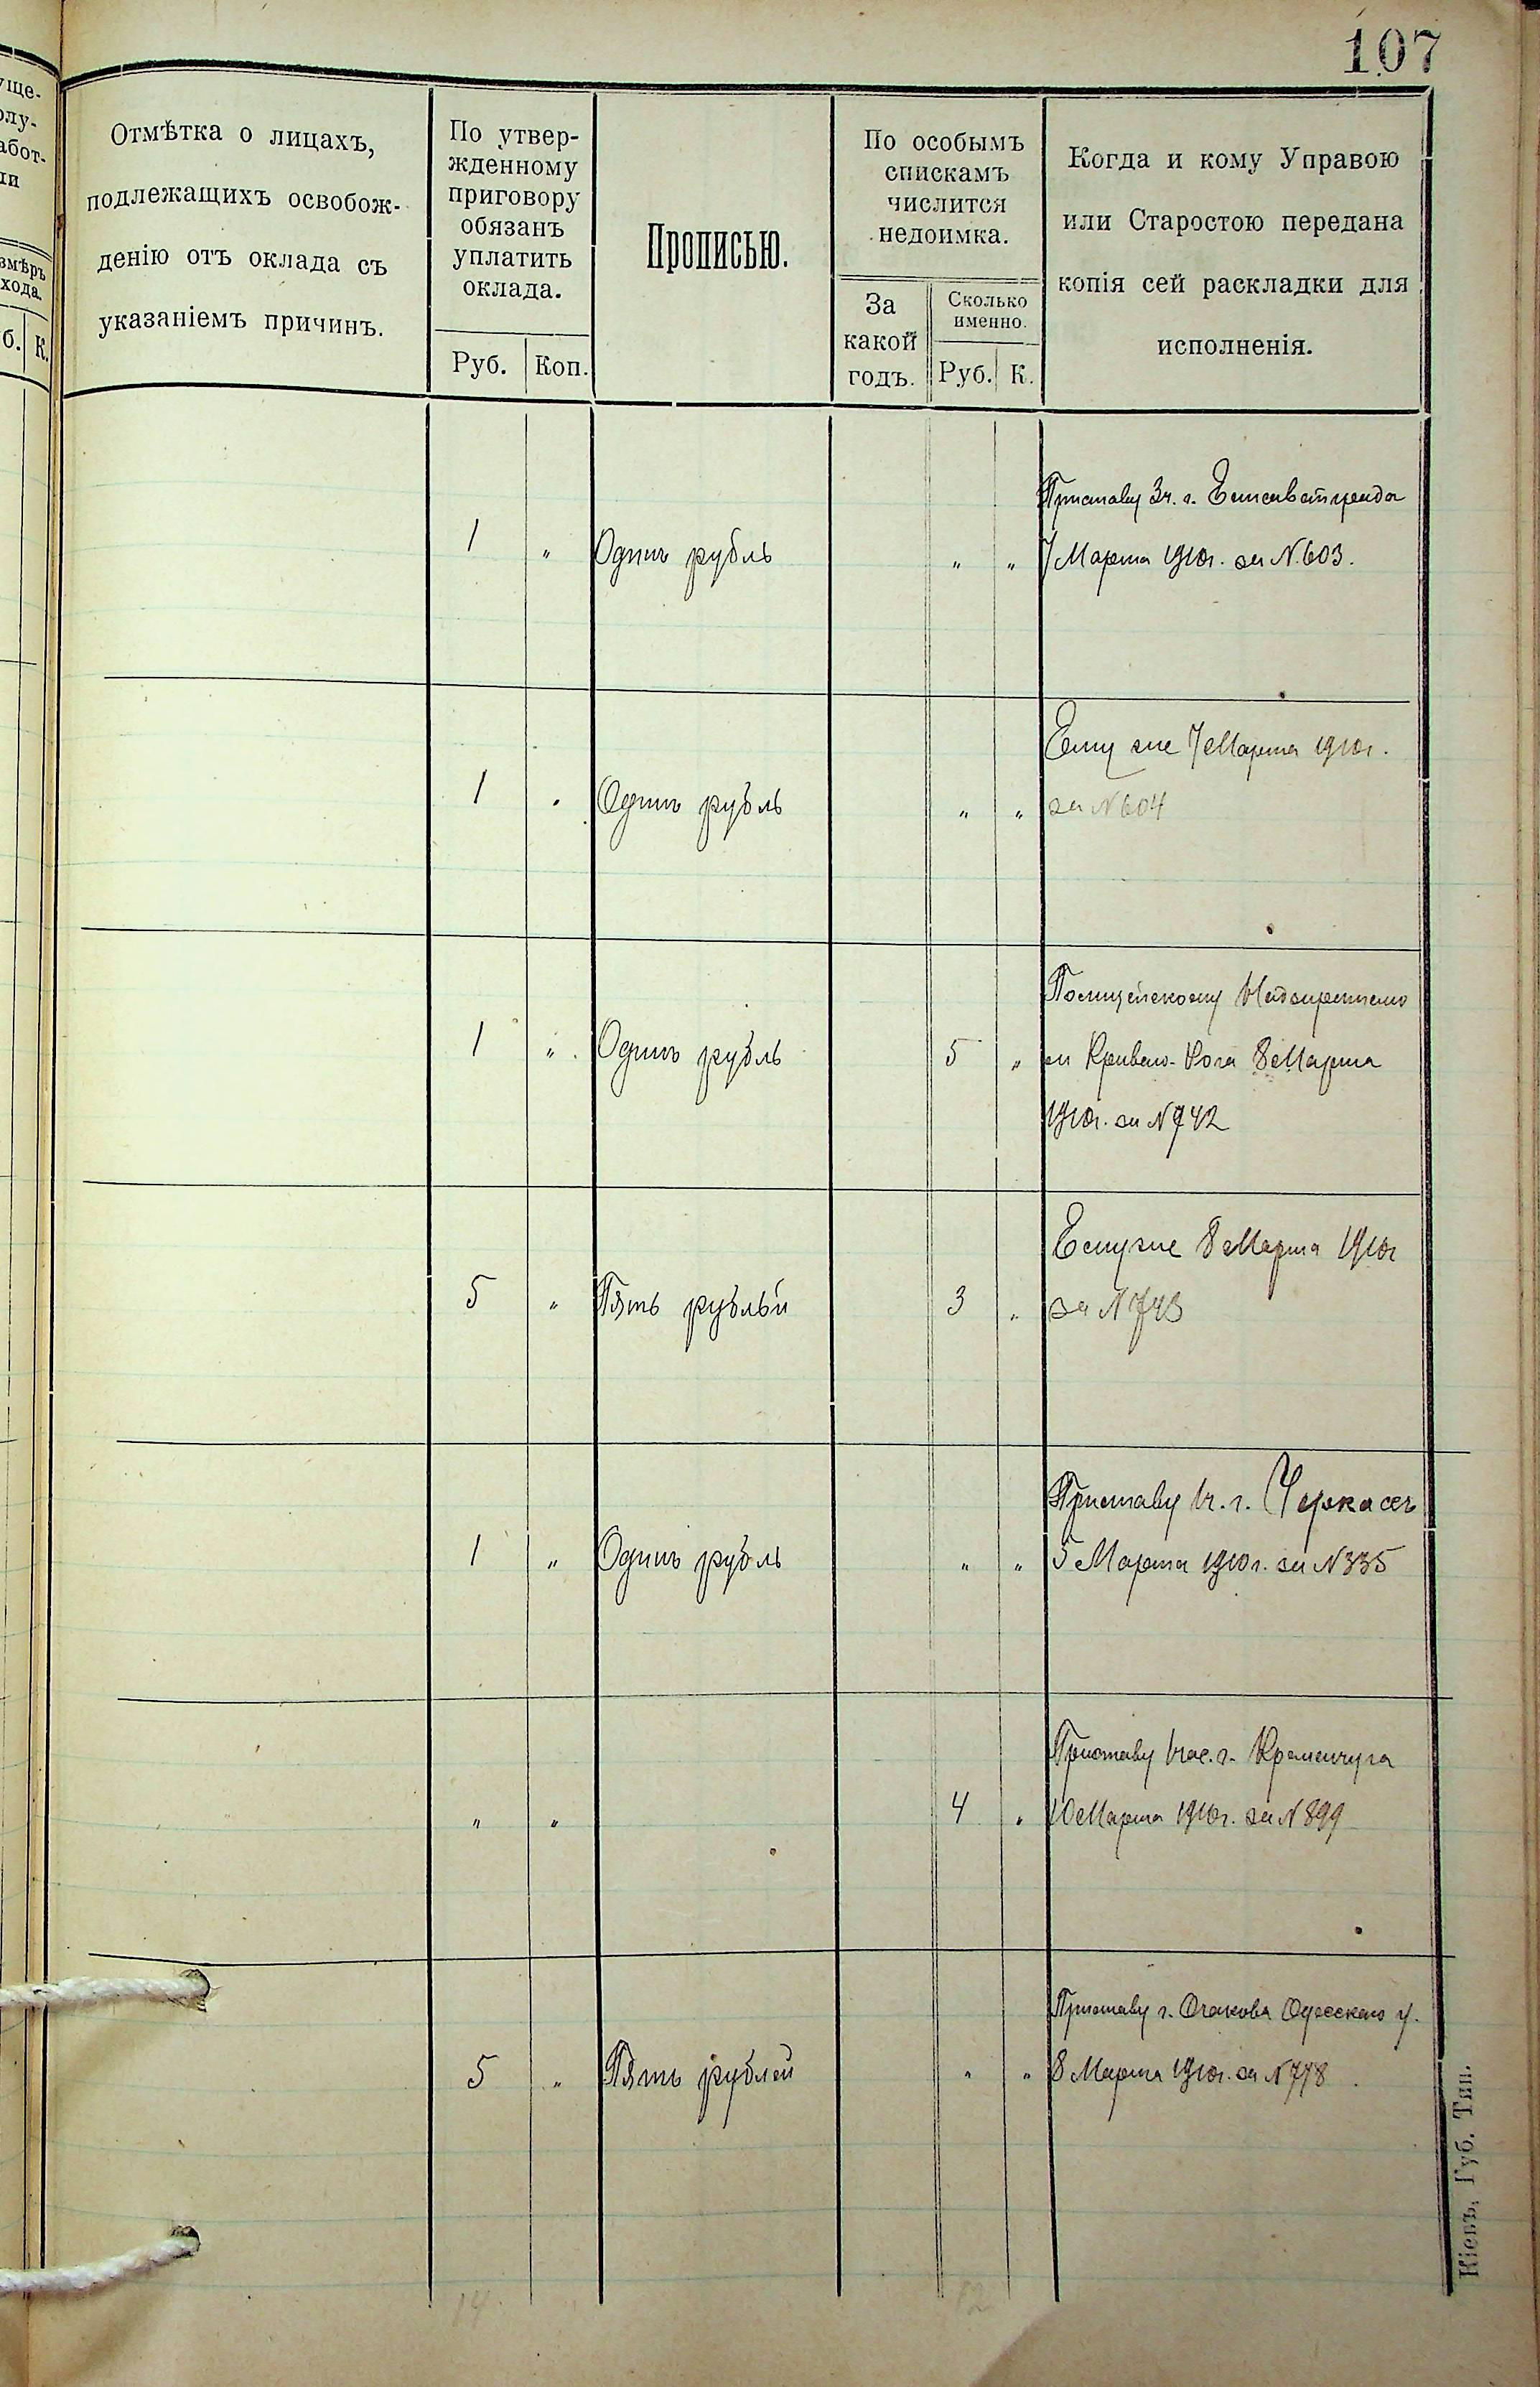 107
уще-
олу-
абот-
ли
змѣръ
хода.
б. К.
Отмѣтка о лицахъ,
подлежащихъ освобож-
денію отъ оклада съ
указаніемъ причинъ.
По утвер-
жденному
приговору
обязанъ
уплатить
оклада.
Руб. Коп.
Прописью.
По особымъ
спискамъ
числится
недоимка.
За
какой
годъ.
Сколько
именно.
Руб. К.
Когда и кому Управою
или Старостою передана
копія сей раскладки для
исполненія.
Приставу 3ч. г. Елисаветграда
1 " Одинъ рубль " " 7 Марта 1910г. за N.603.
Ему же 7 Марта 1910г.
1 " Одинъ рубль " " за N604
Полицейскому Надзирателю
1 " Одинъ рубль 5 " м Кривого-Рога 8 Марта
1910г. за N742
Ему же 8 Марта 1910г
5 " Пять рублей 3 " за N743
Приставу 1ч. г. Черкасъ
1 " Одинъ рубль " " 5 Марта 1910г. за N335
Приставу 1час. г. Кременчуга
" " 4 " 10 Марта 1910г. за N899
Приставу г. Очакова Одесскаго у.
5 " Пять рублей " " 8 Марта 1910г. за N778
14 12
Кіевъ, Губ. Тип.